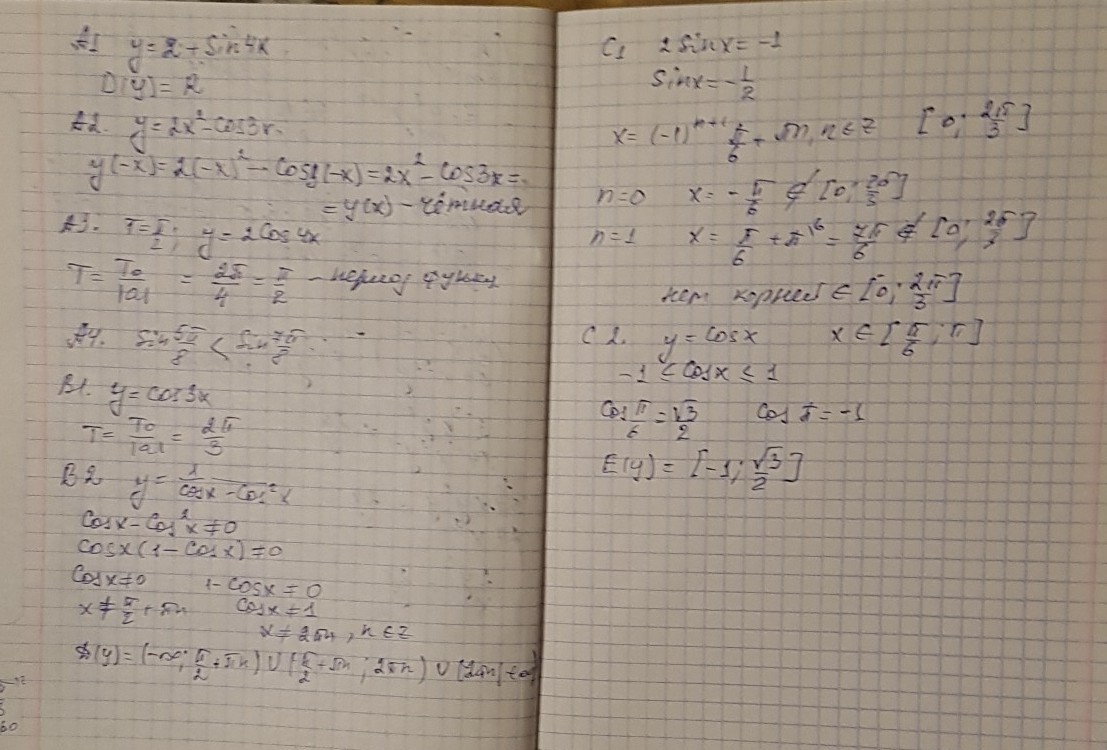 A1 y = 2 + sin4x
D(y) = R
A2. y = 2x² - cos3x.
y(-x) = 2(-x)² - cos3(-x) = 2x² - cos3x =
= y(x) - чётная
A3. T = π/2; y = 2cos4x
T = T₀/|a| = 2π/4 = π/2 - период функц
A4. sin 5π/8 < sin 7π/8
B1. y = cos3x
T = T₀/|a| = 2π/3
B2 y = 1/(cosx - cos²x)
cosx - cos²x ≠ 0
cosx(1 - cosx) ≠ 0
cosx ≠ 0 1 - cosx ≠ 0
x ≠ π/2 + πn cosx ≠ 1
x ≠ 2πn, n ∈ Z
D(y) = (-∞; π/2 + πn) ∪ (π/2 + πn; 2πn) ∪ (2πn; +∞)
C1 2sinx = -1
sinx = -1/2
x = (-1)ⁿ⁺¹ π/6 + πn, n ∈ Z [0; 2π/3]
n = 0 x = -π/6 ∉ [0; 2π/3]
n = 1 x = π/6 + π = 7π/6 ∉ [0; 2π/3]
нет корней ∈ [0; 2π/3]
C2. y = cosx x ∈ [π/6; π]
-1 ≤ cosx ≤ 1
cos π/6 = √3/2 cos π = -1
E(y) = [-1; √3/2]